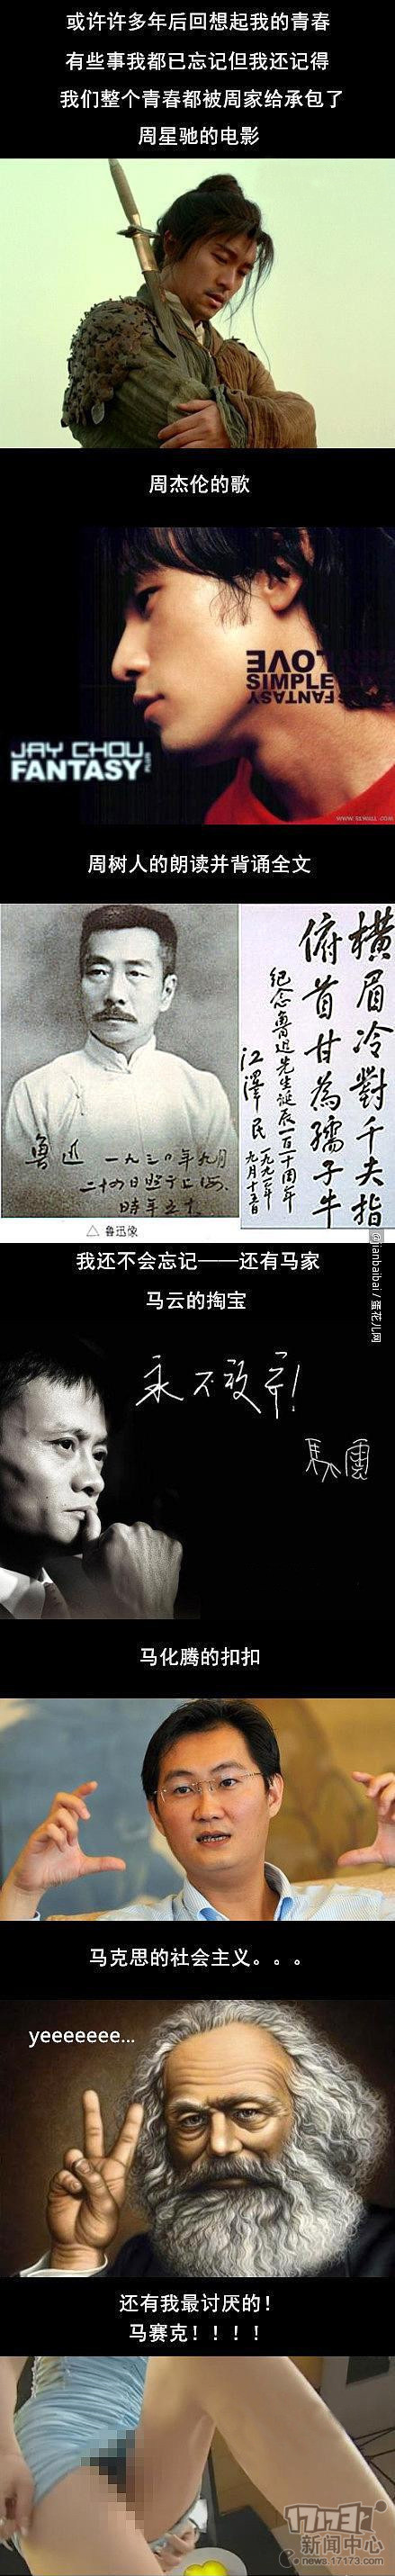 或许许多年后回想起我的青春
有些事我都已忘记但我还记得
我们整个青春都被周家给承包了
周星驰的电影
周杰伦的歌
LOVE
SIMPLE
FANTASY
JAY CHOU
FANTASY
PLUS
周树人的朗读并背诵全文
橫眉冷對千夫指
俯首甘為孺子牛
纪念鲁迅先生诞辰一百一十周年
江澤民
一九九一年
九月十五日
魯迅 一九三〇年九月
二十四日照于上海,
時年五十
△ 鲁迅像
@jianbaibai / 蛋花儿网
我还不会忘记——还有马家
马云的掏宝
永不放弃!
馬雲
马化腾的扣扣
马克思的社会主义。。。
yeeeeeee...
还有我最讨厌的!
马赛克!!!!
17173
新闻中心
news.17173.com